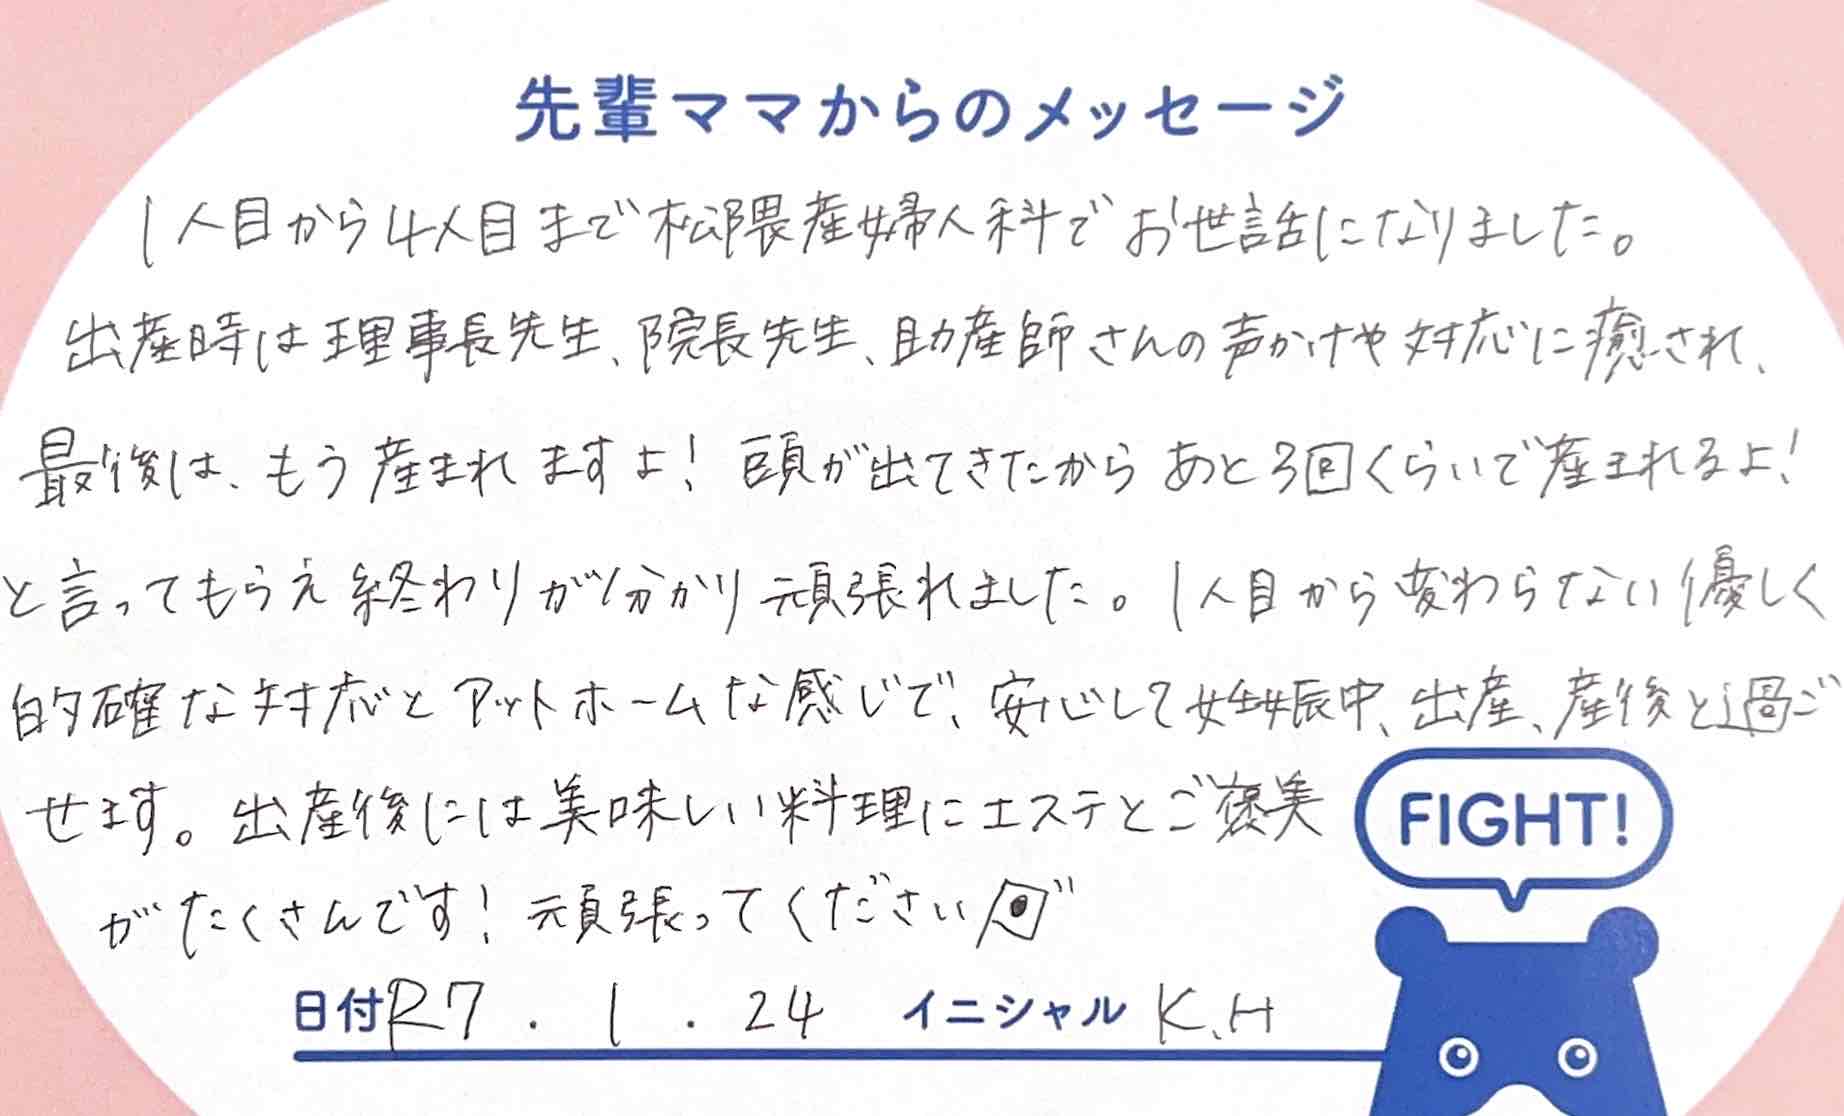 先輩ママからのメッセージ
1人目から4人目まで松隈産婦人科でお世話になりました。
出産時は理事長先生、院長先生、助産師さんの声かけや対応に癒され、
最後は、もう産まれますよ！頭が出てきたからあと3回くらいで産まれるよ！
と言ってもらえ終わりが分かり頑張れました。1人目から変わらない優しく
的確な対応とアットホームな感じで、安心して妊娠中、出産、産後と過ご
せます。出産後には美味しい料理にエステとご褒美
がたくさんです！頑張ってください
FIGHT!
日付R7.1.24 イニシャル K.H